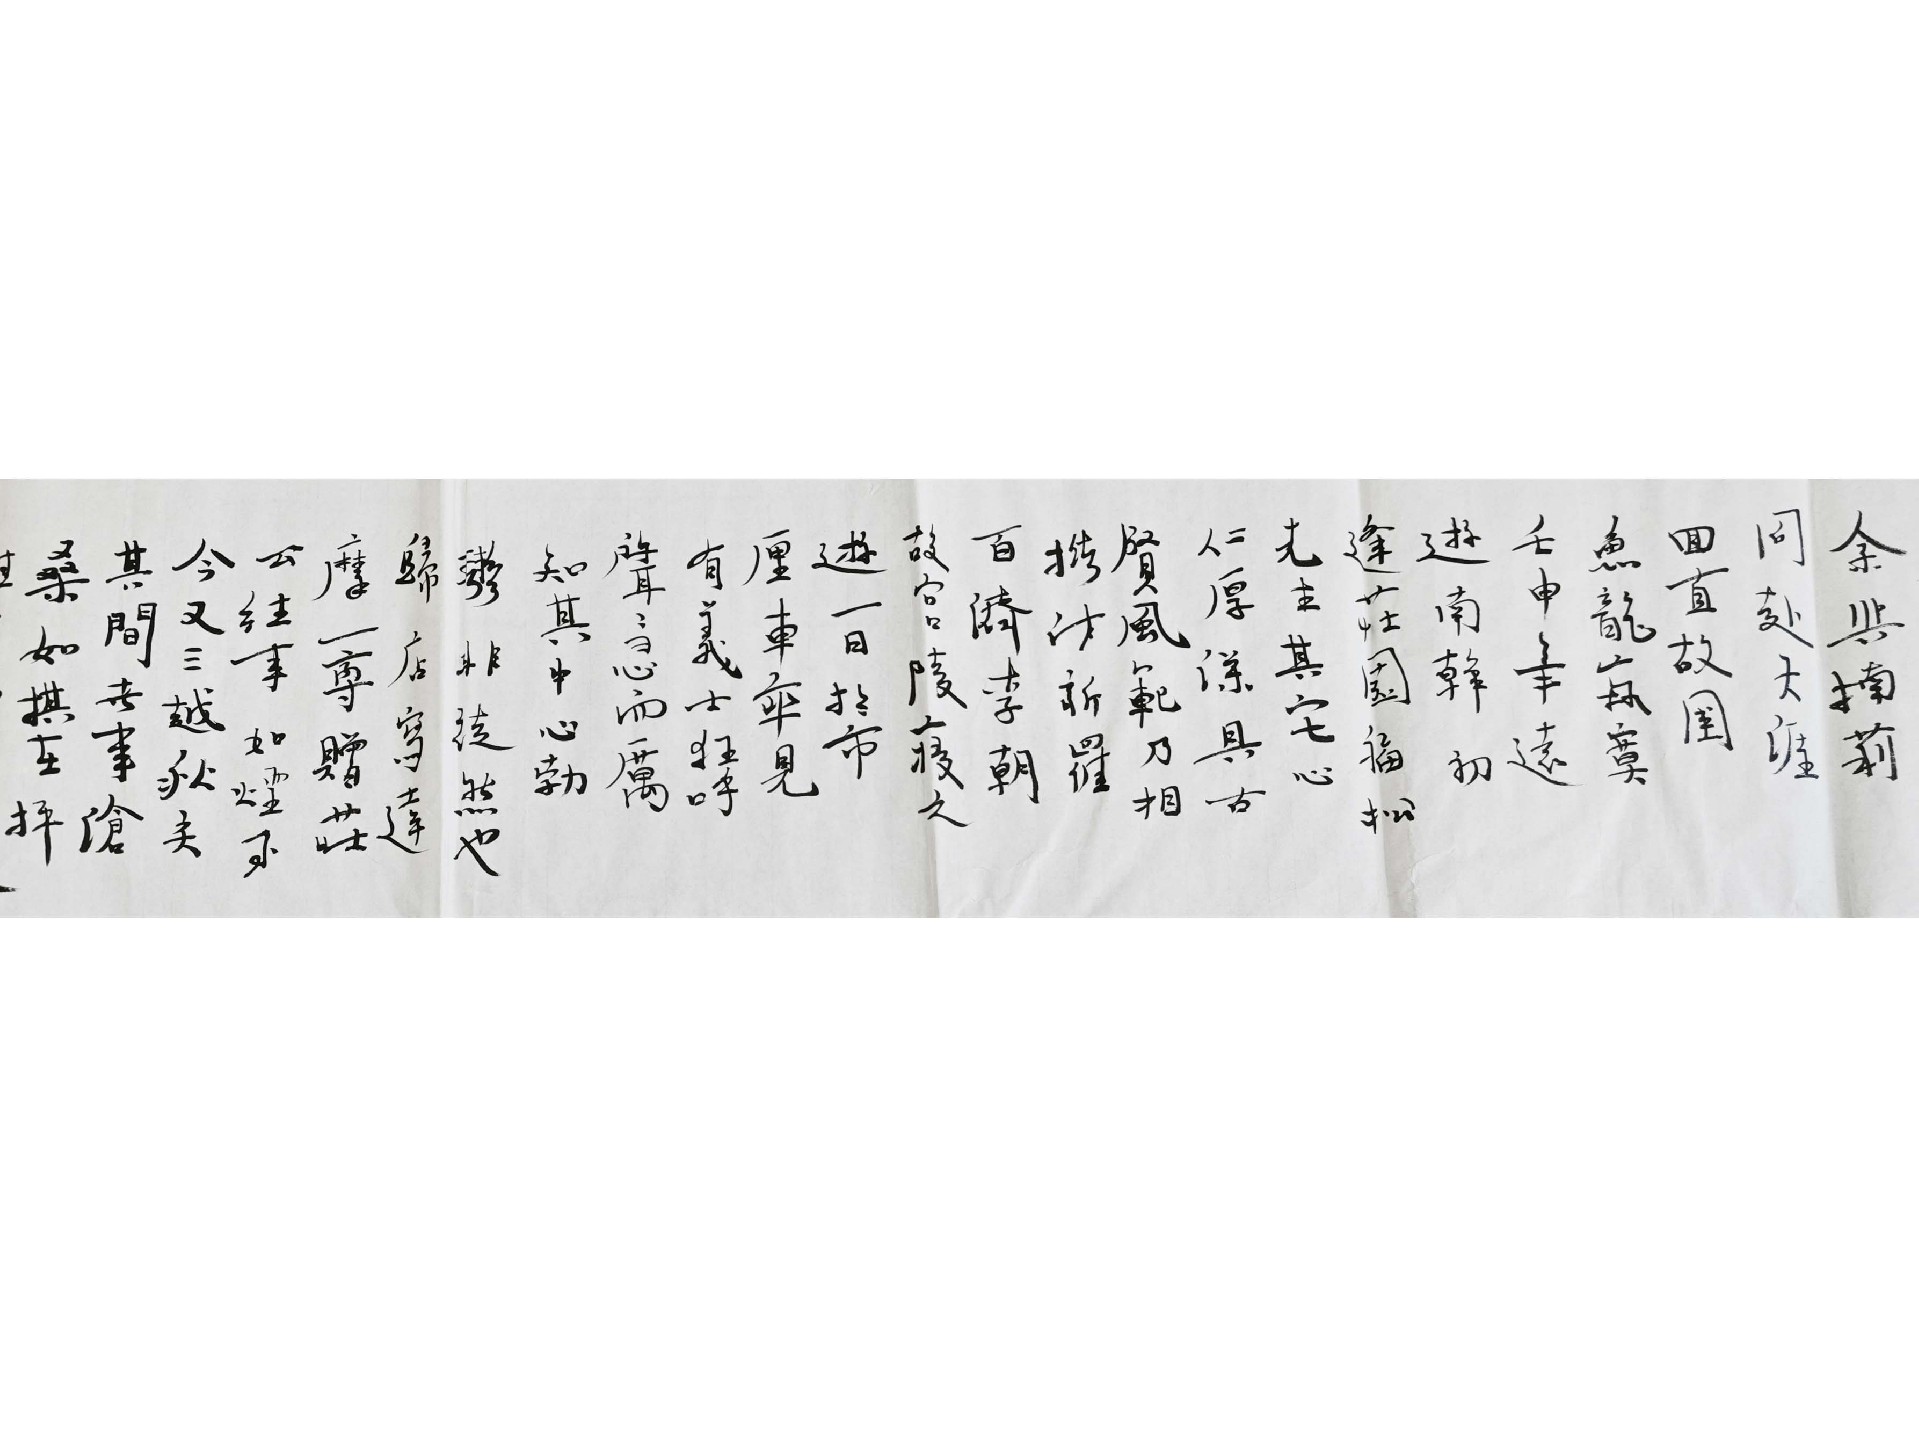 余與楠莉
同赴天涯
回首故國
魚龍寂寞
壬申年遠
遊南韓初
逢莊園福松
先生其宅心
仁厚謙具古
賢風範乃相
携訪新羅
百濟李朝
故宮陵寢之
遊一日於市
廛車率見
有義士狂呼
聲高而厲
知其中心勃
鬱非徒然也
歸店寫達
摩一尊贈莊
公往事如煙不
今又三越秋矣
其間世事滄
桑如棋在枰